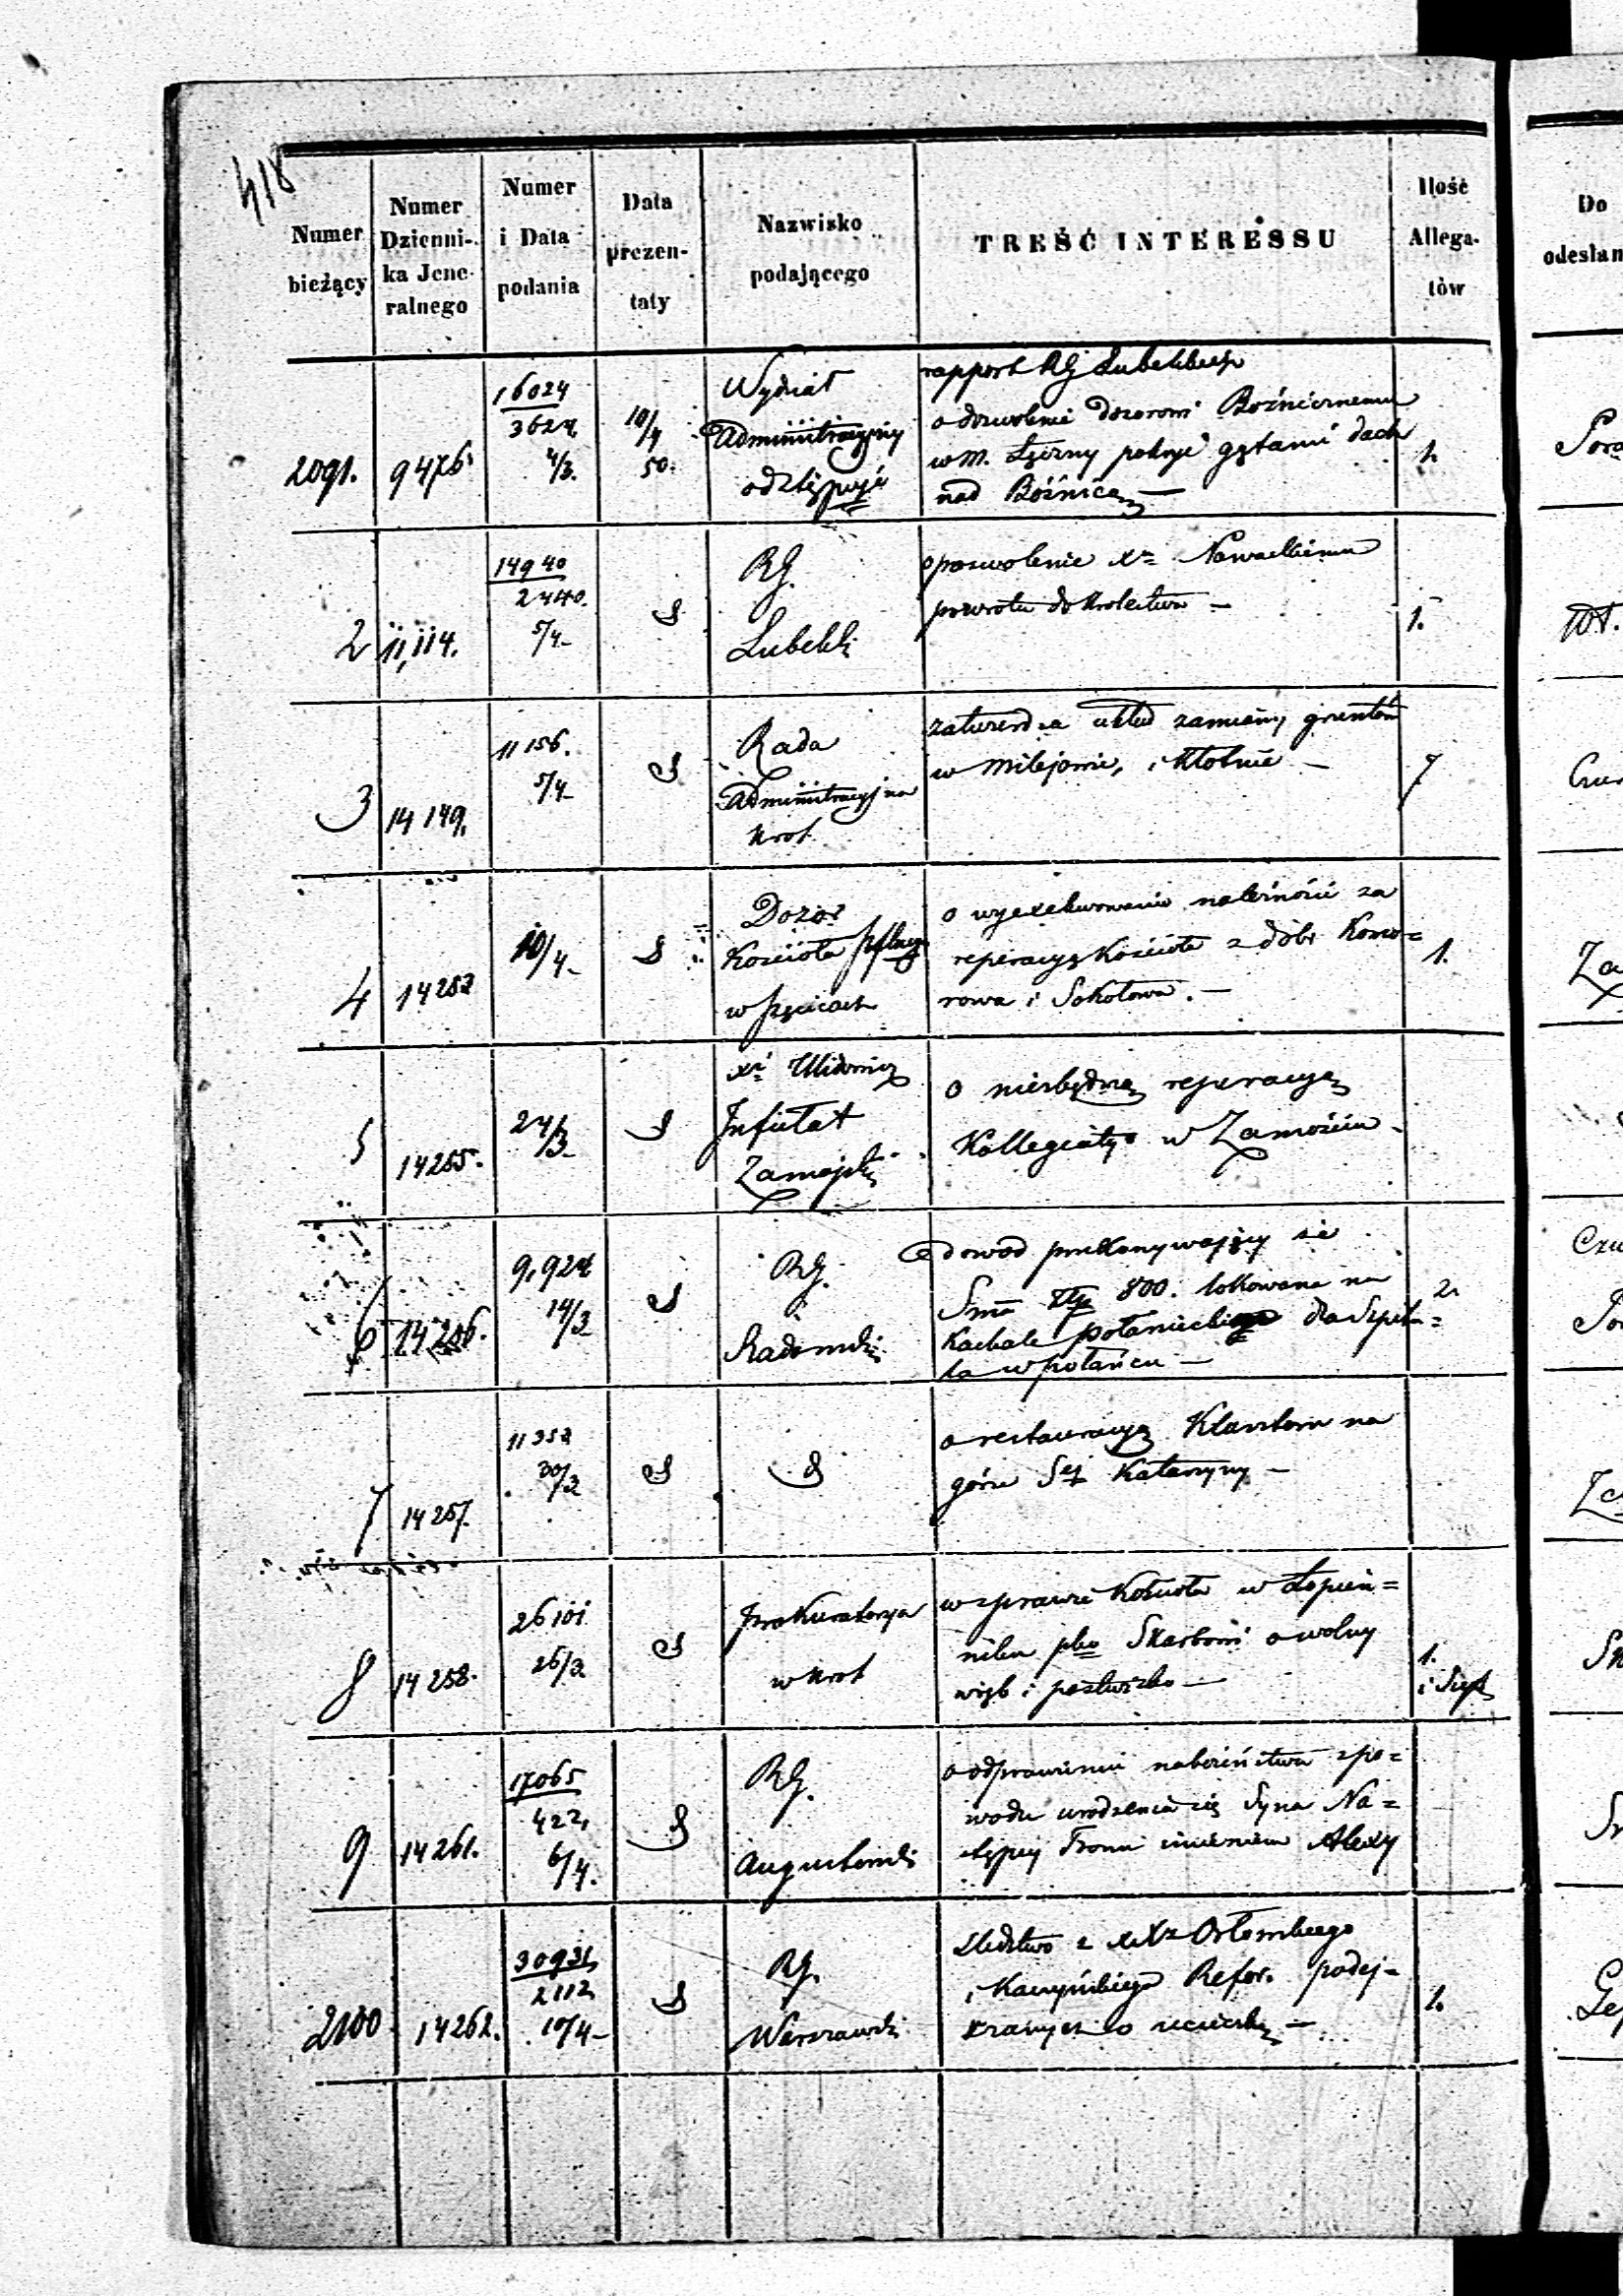 418
Numer bieżący
Numer Dzienni-ka Jene-ralnego
Numer i Data podania
Data prezen-taty
Nazwisko podającego
TREŚĆ INTERESSU
Ilość Allega-tów
Do odesłan
2091. 9476
16024
3624
4/3.
10/4
50.
Wydział
Administracyjny
odstępuje
rapport RG Lubelskiego
o dozwolenie dozorowi Bożnicznemu
w M. Łęczny pokryć gątami dach
nad Bóżnicą —
1.
2 11,114.
14940
2440.
5/4-
RG.
Lubelski
o pozwolenie Xu Nowackiemu
powrotu do Krolestwa —
1.
3 14149.
11156.
5/4-
Rada
Administracyjna
Krol.
zatwierdza układ zamiany gruntów
w Milejowie, i Kłotnie —
7
4 14253
10/4-
Dozór
Kościoła
w Pęcicach
o wyexekwowanie należności za
reperacyę Kościoła z dóbr Komo=
rowa i Sokołowa. —
1.
5 14255.
24/3-
Infułat
Zamojski
o niezbędną reperacyą
Kollegiaty w Zamościu -
6 14256.
9,924
14/3
RG.
Radomski
dowod przekonywający że
Smã Złp 800. lokowana na
Kahale Połanieckim dla Szpita=
la w Połańcu —
2.
7 14257.
11353
30/3
o restauracyą Klasztoru na
górze Sej Katarzyny —
8 14258.
26101
26/3
Prokuratorya
w Krol
w sprawie Kościoła w Łopien=
niku pko Skarbowi o wolny
wrąb i pastwisko —
1.
9 14261.
17065
422,
6/4.
RG.
Augustowski
o odprawieniu nabożeństwa z po=
wodu urodzenia się Syna Na=
stępcy Tronu imieniem Alexy
2100 14262.
30931
2112
10/4-
RG.
Warszawski
Śledztwo z
i Kaczyńskiego Refor. podej-
rzanych o ucieczkę —